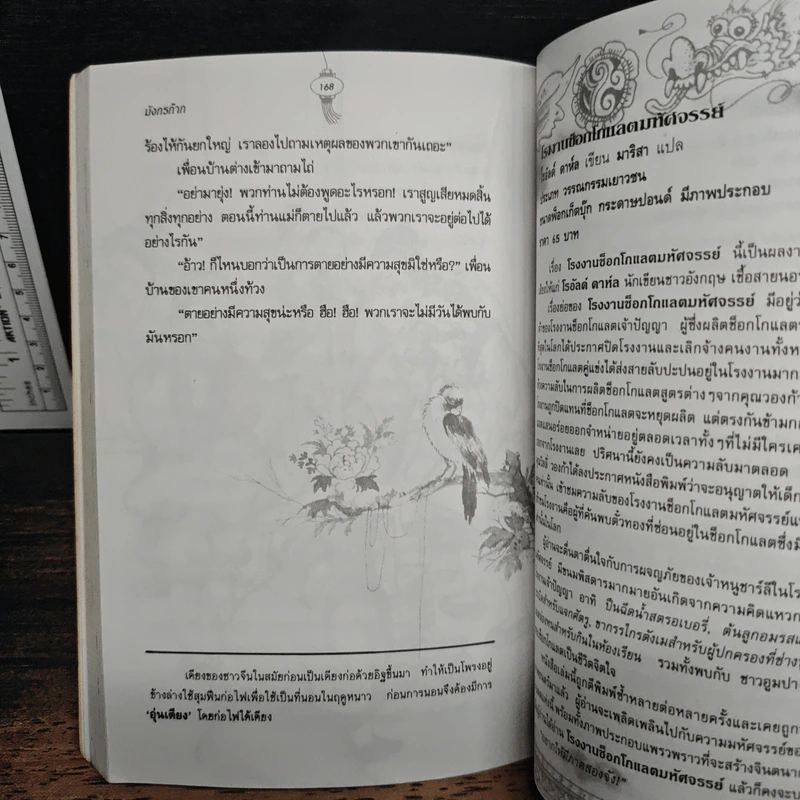 168
มังกรก๊าก
ร้องไห้กันยกใหญ่ เราลองไปถามเหตุผลของพวกเขากันเถอะ”
เพื่อนบ้านต่างเข้ามาถามไถ่
“อย่ามายุ่ง! พวกท่านไม่ต้องพูดอะไรหรอก! เราสูญเสียหมดสิ้น
ทุกสิ่งทุกอย่าง ตอนนี้ท่านแม่ก็ตายไปแล้ว แล้วพวกเราจะอยู่ต่อไปได้
อย่างไรกัน”
“อ้าว! ก็ไหนบอกว่าเป็นการตายอย่างมีความสุขมิใช่หรือ?” เพื่อน
บ้านของเขาคนหนึ่งท้วง
“ตายอย่างมีความสุขน่ะหรือ ฮือ! ฮือ! พวกเราจะไม่มีวันได้พบกับ
มันหรอก”
เตียงของชาวจีนในสมัยก่อนเป็นเตียงก่อด้วยอิฐขึ้นมา ทำให้เป็นโพรงอยู่
ข้างล่างใช้สุมฟืนก่อไฟเพื่อใช้เป็นที่นอนในฤดูหนาว ก่อนการนอนจึงต้องมีการ
‘อุ่นเตียง’ โดยก่อไฟใต้เตียง
โรงงานช็อกโกแลตมหัศจรรย์
โรอัลด์ ดาห์ล เขียน มาริสา แปล
ประเภท วรรณกรรมเยาวชน
ขนาดพ็อกเก็ตบุ๊ก กระดาษปอนด์ มีภาพประกอบ
ราคา 65 บาท
เรื่อง โรงงานช็อกโกแลตมหัศจรรย์ นี้เป็นผลงา
โรอัลด์ ดาห์ล นักเขียนชาวอังกฤษ เชื้อสายนอ
เรื่องย่อของ โรงงานช็อกโกแลตมหัศจรรย์ มีอยู่ว
ของโรงงานช็อกโกแลตเจ้าปัญญา ผู้ซึ่งผลิตช็อกโกแลต
ในโลกได้ประกาศปิดโรงงานและเลิกจ้างคนงานทั้งห
ช็อกโกแลตคู่แข่งได้ส่งสายลับปะปนอยู่ในโรงงานมาก
ความลับในการผลิตช็อกโกแลตสูตรต่างๆจากคุณวองก้า
ถูกปิดแทนที่ช็อกโกแลตจะหยุดผลิต แต่ตรงกันข้ามก
อร่อยออกจำหน่ายอยู่ตลอดเวลาทั้งๆที่ไม่มีใครเค
จากโรงงานเลย ปริศนานี้ยังคงเป็นความลับมาตลอด
วองก้าได้ลงประกาศหนังสือพิมพ์ว่าจะอนุญาตให้เด็ก
เข้าชมความลับของโรงงานช็อกโกแลตมหัศจรรย์แ
คือผู้ที่ค้นพบตั๋วทองที่ซ่อนอยู่ในช็อกโกแลตซึ่งมี
ในโลก
ผู้อ่านจะตื่นตาตื่นใจกับการผจญภัยของเจ้าหนูชาร์ลีในโร
มีขนมพิสดารมากมายอันเกิดจากความคิดแหวก
อาทิ ปืนฉีดน้ำสตรอเบอรี่, ต้นลูกอมรส
สำหรับแจกศัตรู, ขากรรไกรดังเมสำหรับผู้ปกครองที่ช่าง
สำหรับกินในห้องเรียน รวมทั้งพบกับ ชาวอูมปา
เป็นชีวิตจิตใจ
หนังสือเล่มนี้ถูกตีพิมพ์ซ้ำหลายต่อหลายครั้งและเคยถูก
มาแล้ว ผู้อ่านจะเพลิดเพลินไปกับความมหัศจรรย์ขอ
พร้อมทั้งภาพประกอบแพรวพราวที่จะสร้างจินตนา
โรงงานช็อกโกแลตมหัศจรรย์ แล้วก็คงจะบ
ให้มีภาคสองจัง!”